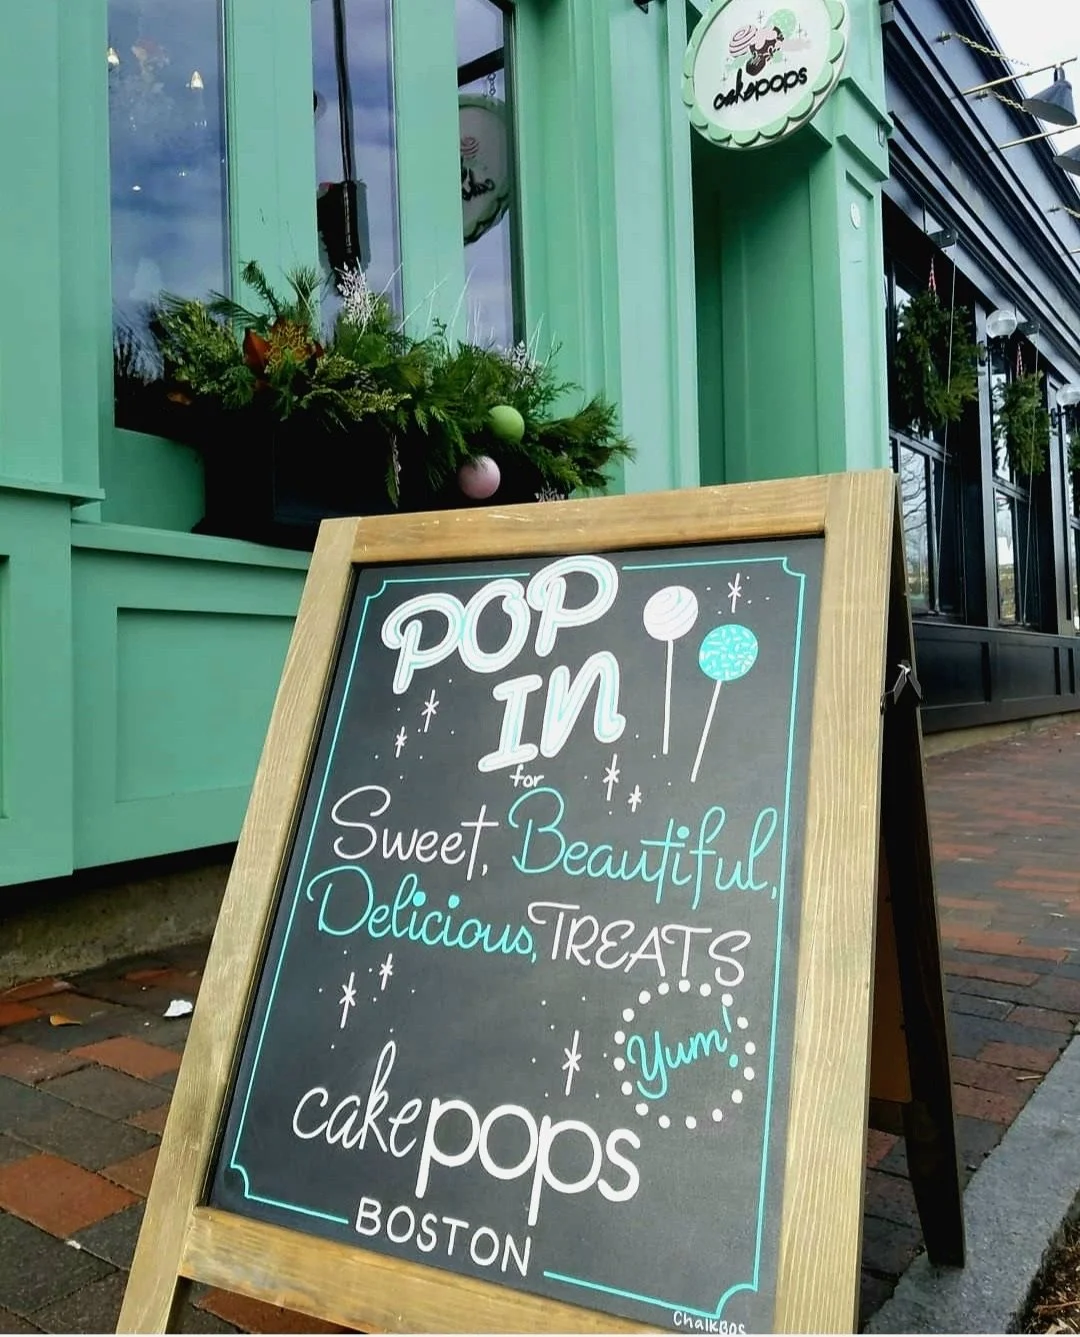 cakepops
POP
IN
for
Sweet, Beautiful,
Delicious, TREATS
Yum!
cakepops
BOSTON
ChalkBOS